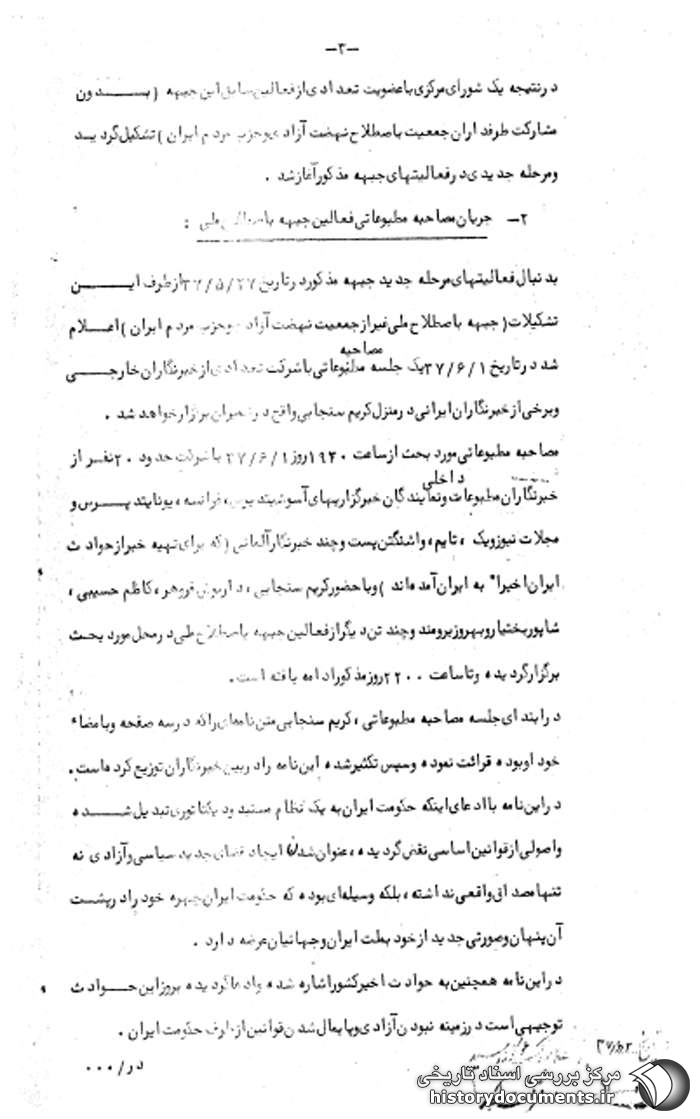 -۳-
در نتیجه یک شورای مرکزی با عضویت تعدادی از فعالین سابق این جبهه (بـــدون
مشارکت طرفداران جمعیت باصطلاح نهضت آزادی و حزب مردم ایران) تشکیل گردیـــد
و مرحله جدیدی در فعالیتهای جبهه مذکور آغاز شد .
۲- جریان مصاحبه مطبوعاتی فعالین جبهه باصطلاح ملی :
بدنبال فعالیتهای مرحله جدید جبهه مذکور در تاریخ ۳۷/۵/۲۷ از طرف ایـــن
تشکیلات (جبهه باصطلاح ملی غیر از جمعیت نهضت آزادی و حزب مردم ایران) اعـــلام
مصاحبه
شد در تاریخ ۳۷/۶/۱ یک جلسه مطبوعاتی با شرکت تعدادی از خبرنگاران خارجـــی
و برخی از خبرنگاران ایرانی در منزل کریم سنجابی واقع در تهران برگزار خواهد شد .
مصاحبه مطبوعاتی مورد بحث از ساعت ۱۹۳۰ روز ۳۷/۶/۱ با شرکت حدود ۲۰ نفــر از
داخلی
خبرنگاران مطبوعات و نمایندگان خبرگزاریهای آسوشیتدپرس ، فرانسه ، یونایتد پـــرس و
مجلات نیوزویک ، تایم ، واشنگتن پست و چند خبرنگار آلمانی (که برای تهیه خبر از حوادث
ایران اخیرا" به ایران آمده‌اند) و با حضور کریم سنجابی ، داریوش فروهر ، کاظم حسیبی ،
شاپور بختیار و بهروز برومند و چند تن دیگر از فعالین جبهه باصطلاح ملی در محل مورد بحث
برگزار گردیده و تا ساعت ۲۲۰۰ روز مذکور ادامه یافته است .
در ابتدای جلسه مصاحبه مطبوعاتی ، کریم سنجابی متن نامه‌ای را که در سه صفحه و بامضاء
خود او بوده قرائت نموده و سپس تکثیر شده این نامه را در بین خبرنگاران توزیع کرده‌است .
در این نامه با ادعای اینکه حکومت ایران به یک نظام مستبد و دیکتاتوری تبدیل شـــده
و اصولی از قوانین اساسی نقض گردیده ، عنوان شده ایجاد فضای جدید سیاسی و آزادی نه
تنها مصداق واقعی نداشته ، بلکه وسیله‌ای بوده که حکومت ایران چهره خود را در پشت
آن پنهان و صورتی جدید از خود بملت ایران و جهانیان عرضه دارد .
در این نامه همچنین به حوادث اخیر کشور اشاره شده و ادعا گردیده بروز این حـــوادث
توجیهی است در زمینه نبودن آزادی و پایمال شدن قوانین از طرف حکومت ایران .
در/۰۰۰
مرکز بررسی اسناد تاریخی
historydocuments.ir